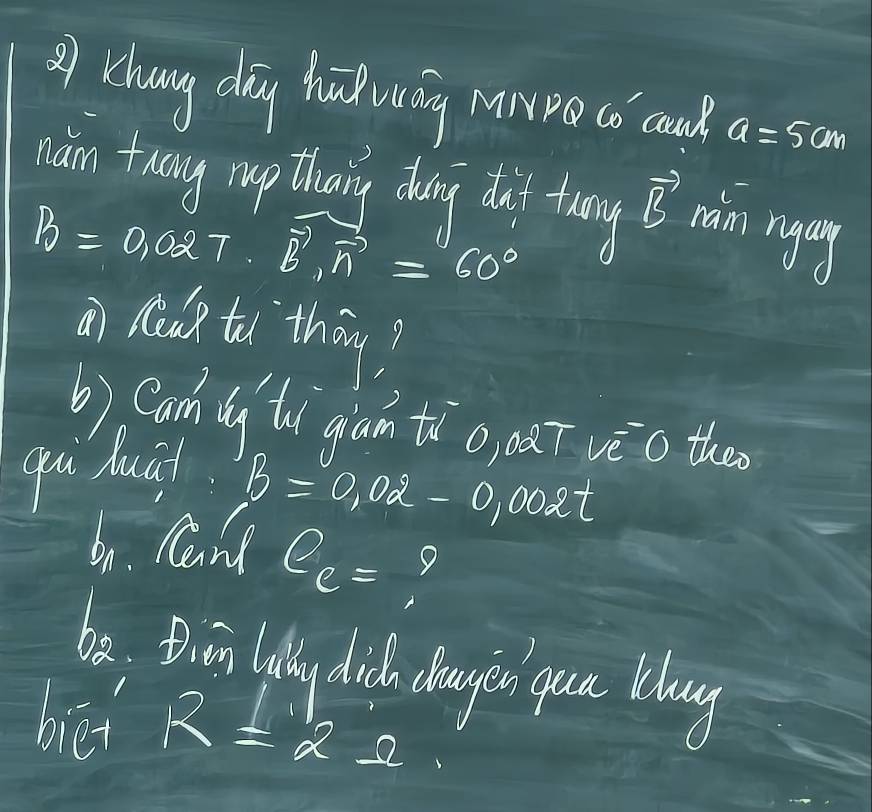 2) Khung dây hình vuông MNPQ có cạnh a = 5 cm
nằm trong mp thẳng đứng đặt trong B⃗ nằm ngang
B = 0,02T. B⃗, n⃗ = 60°
a) Tính từ thông?
b) Cảm ứng từ giảm từ 0,02T về 0 theo
qui luật: B = 0,02 - 0,002t
b1. Tính ec = ?
b2. Điện lượng dịch chuyển qua khung
biết R = 2 Ω.